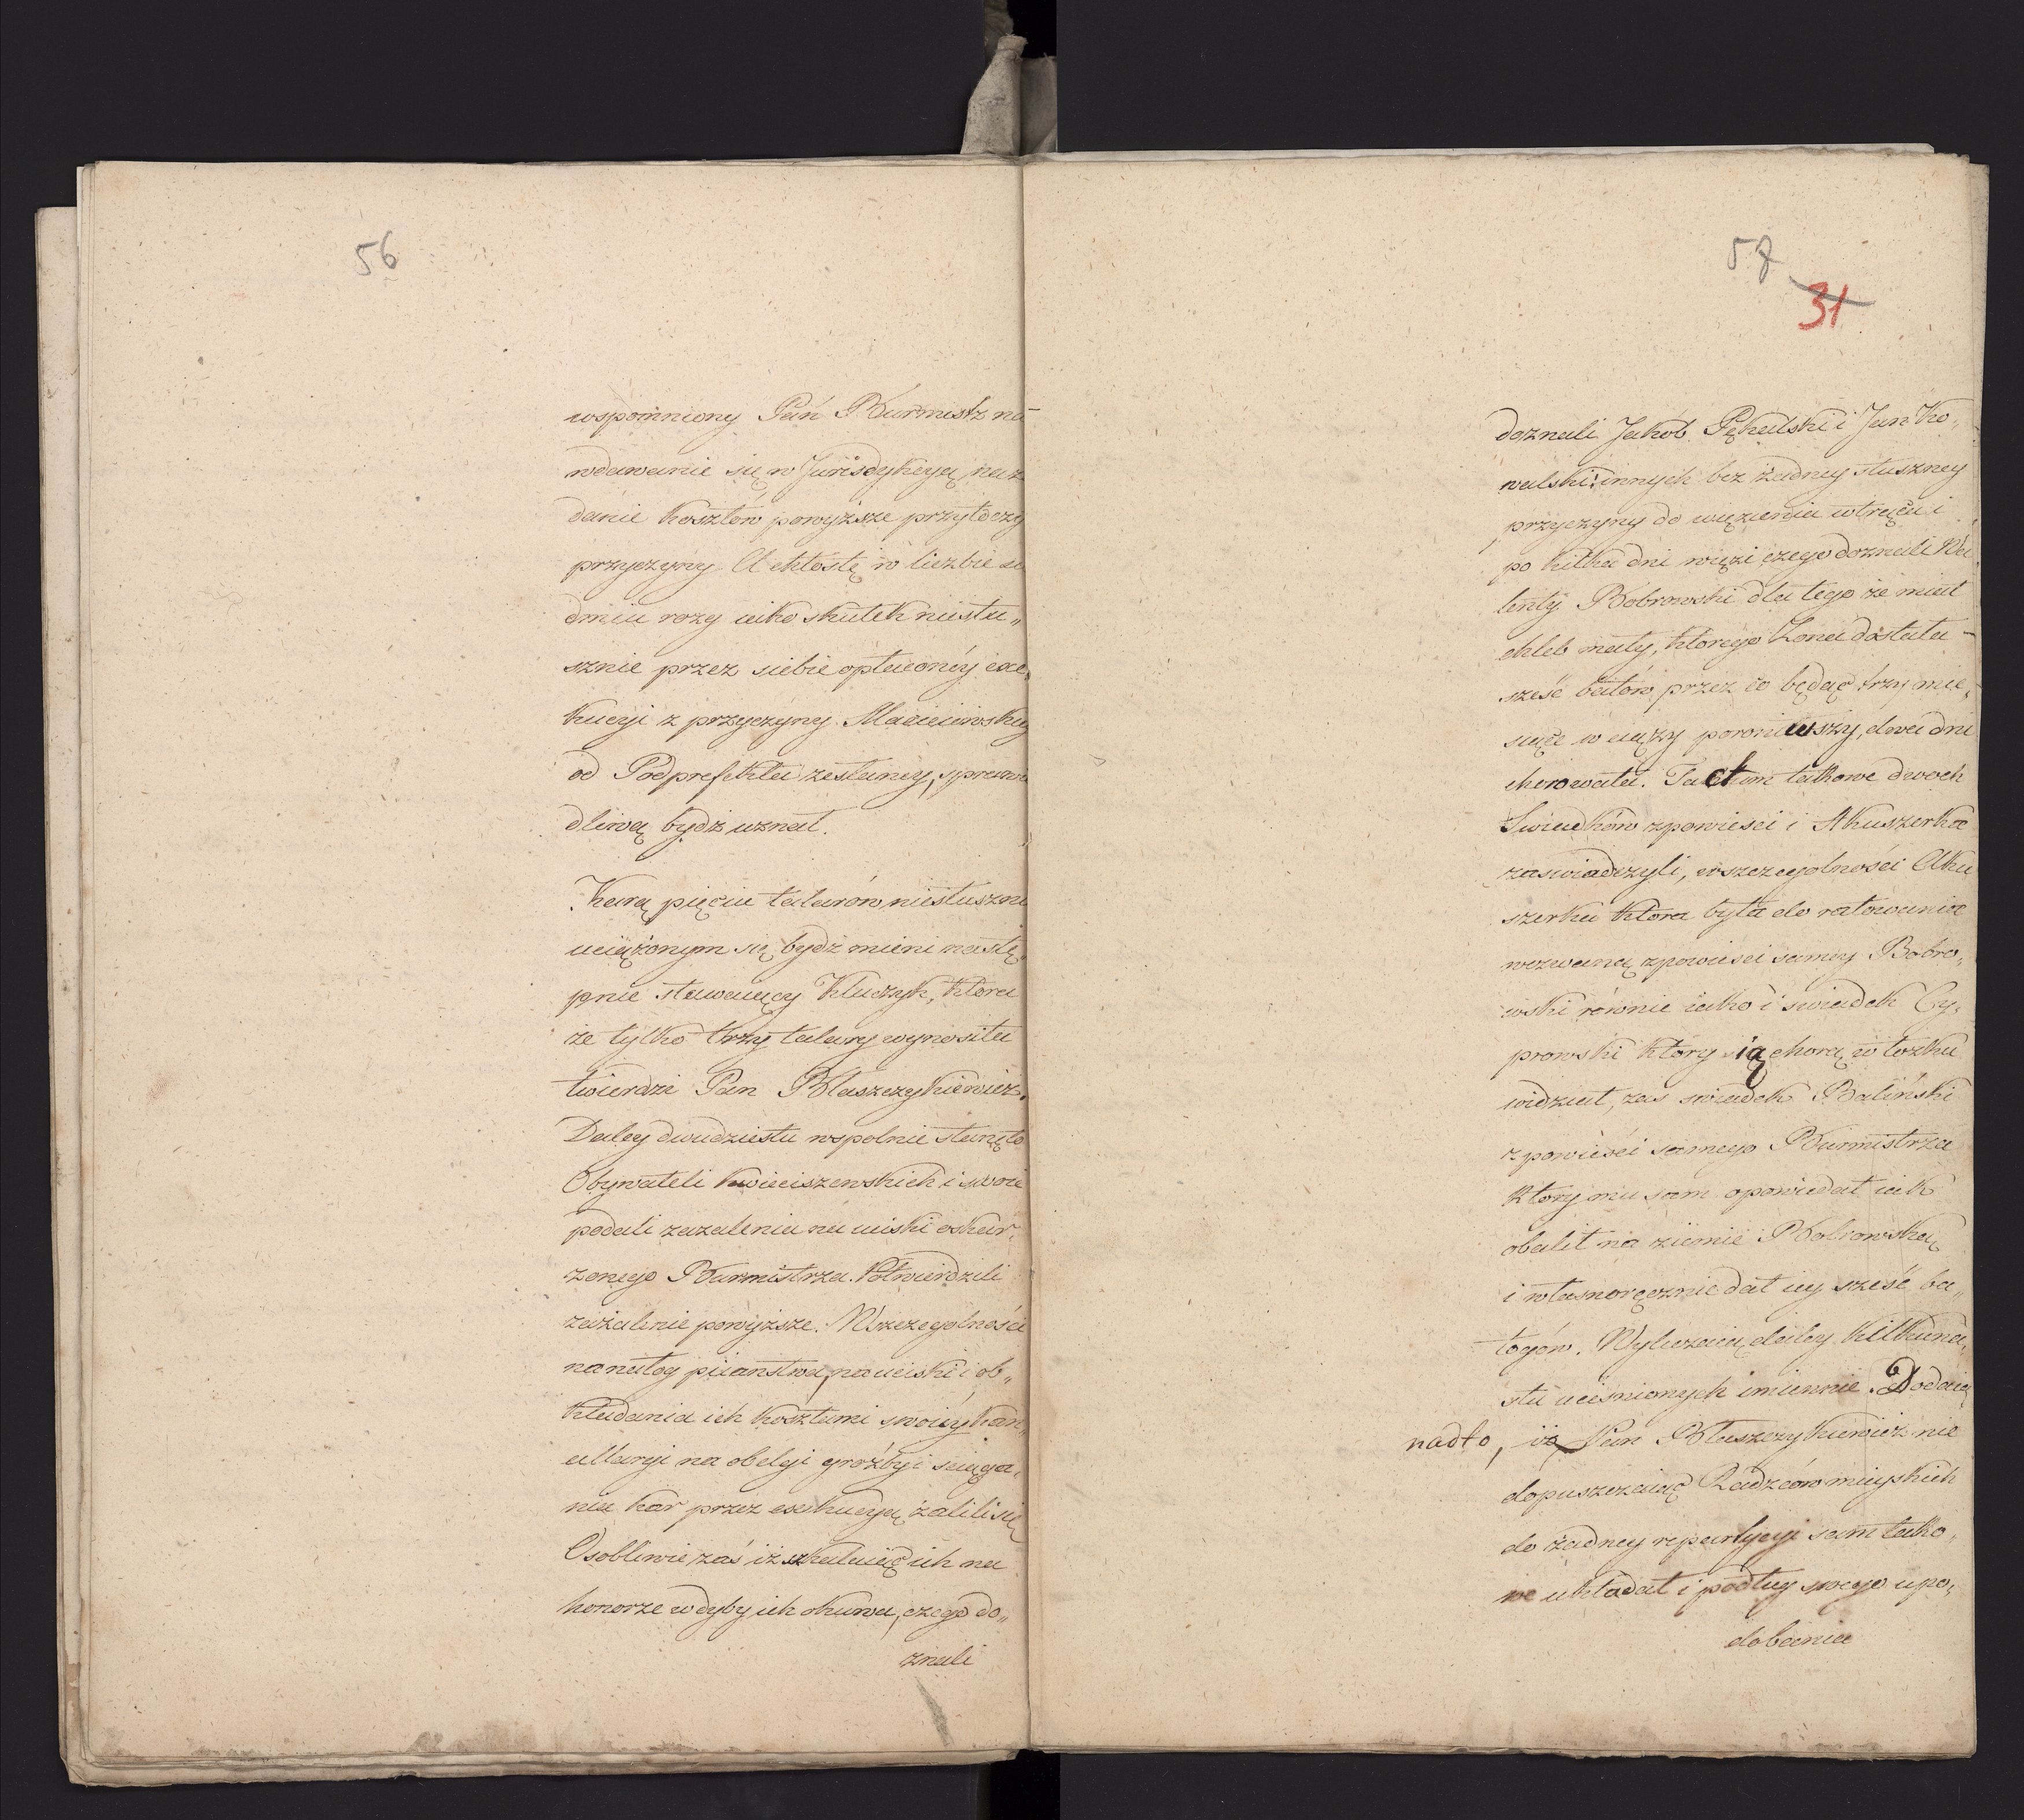 56
wspomniony Pan Burmistz na
wdawanie się w Jurisdykcyą, na z
danie kosztów powyższe przytoczy
przyczyny. A chłostę w liczbie si
dmiu rozy iako skutek niesłu„
sznie przez siebie opłaconéy exe„
kucyi z przyczyny Macieiewskiey
od Podprefekta zesłaney, sprawie
dliwą bydź uznał.
Karą pięciu talarów niesłusznie
uciążonym się bydź mieni nastę„
pnie stawaiący Kluczyk, ktora
że tylko trzy talary wynosiła
twierdzi Pan Błaszczykiewicz.
Daley dwudziestu wspolnie stanęło
Obywateli Kwieciszewskich i swoie
podali zażalenia na uciski oskar„
żonego Burmistrza. Potwierdzili
zażalenie powyższe. W szczegolności
na nałog piiaństwa, na uciski i ob„
kładania ich kosztami swoiéy kan„
cellaryi na obelgi groźby i ściąga„
nia kar przez exekucyą żalili się
Osobliwie zaś iż szkaluiąc ich na
honorze w dyby ich okuwa, czego do„
znali
57
31
doznali Jakób Pękalski i Jan Ko„
walski; innych bez żadney słuszney
przyczyny do więzienia wtrąca i
po kilka dni więzi czego doznali Wa
lenty Bobrowski dla tego że miał
chleb mały, ktorego Żona dostała
sześć batów przez co będąc trzy mie„
siące w ciąży poroniwszy, dwa dni
chorowała. Factum takowe dwoch
Swiadków z powieści i Akuszerka
zaswiadczyli, w szczegolności Aku
szerka ktora była do ratowania
wezwaną z powieści samey Bobro„
wski rownie iako i swiadek Cy„
prowski ktory ią chorą w łożku
widział, zas swiadek Baliński
z powieści samego Burmistrza
ktory mu sam opowiadał iak
obalił na ziemie Bobrowską
i własnoręcznie dał iey sześć ba„
togów. Wyliczaią daley kilkuna„
stu uciśnionych imiennie. Dodaią
nadto, iż Pan Błaszczykiewicz nie
dopuszczaiąc Radzców mieyskich
do żadney repartycyi sam tako„
we układał i podług swego upo„
dobania